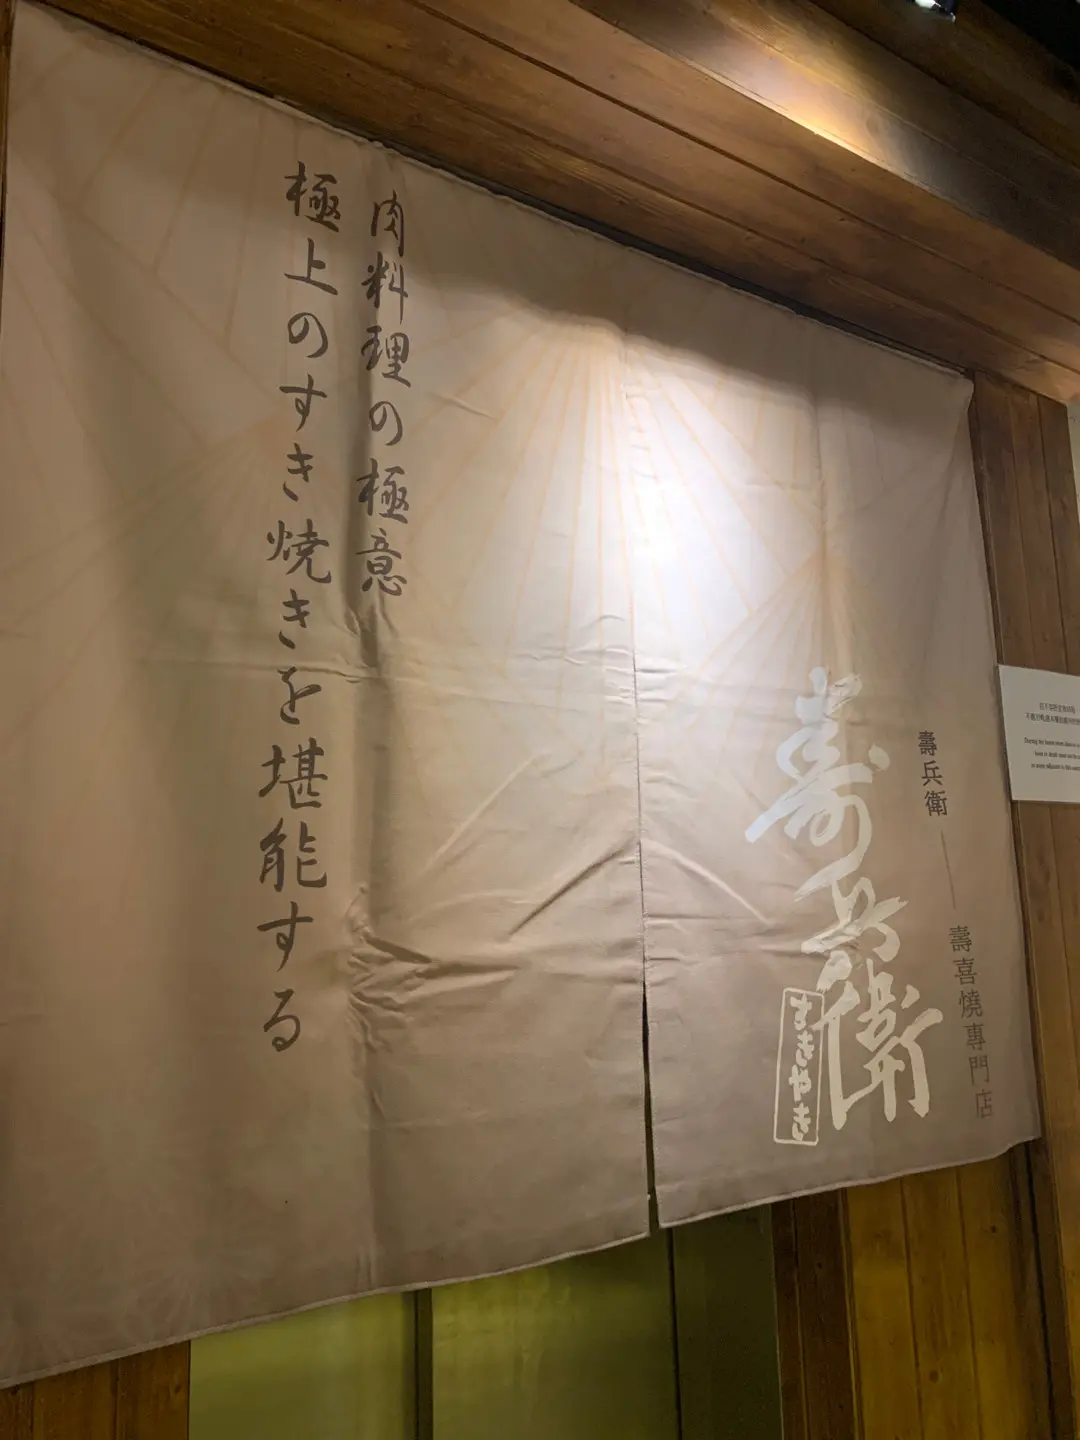 肉料理の極意
極上のすき焼きを堪能する
壽兵衛
すきやき
壽兵衛 — 壽喜燒專門店